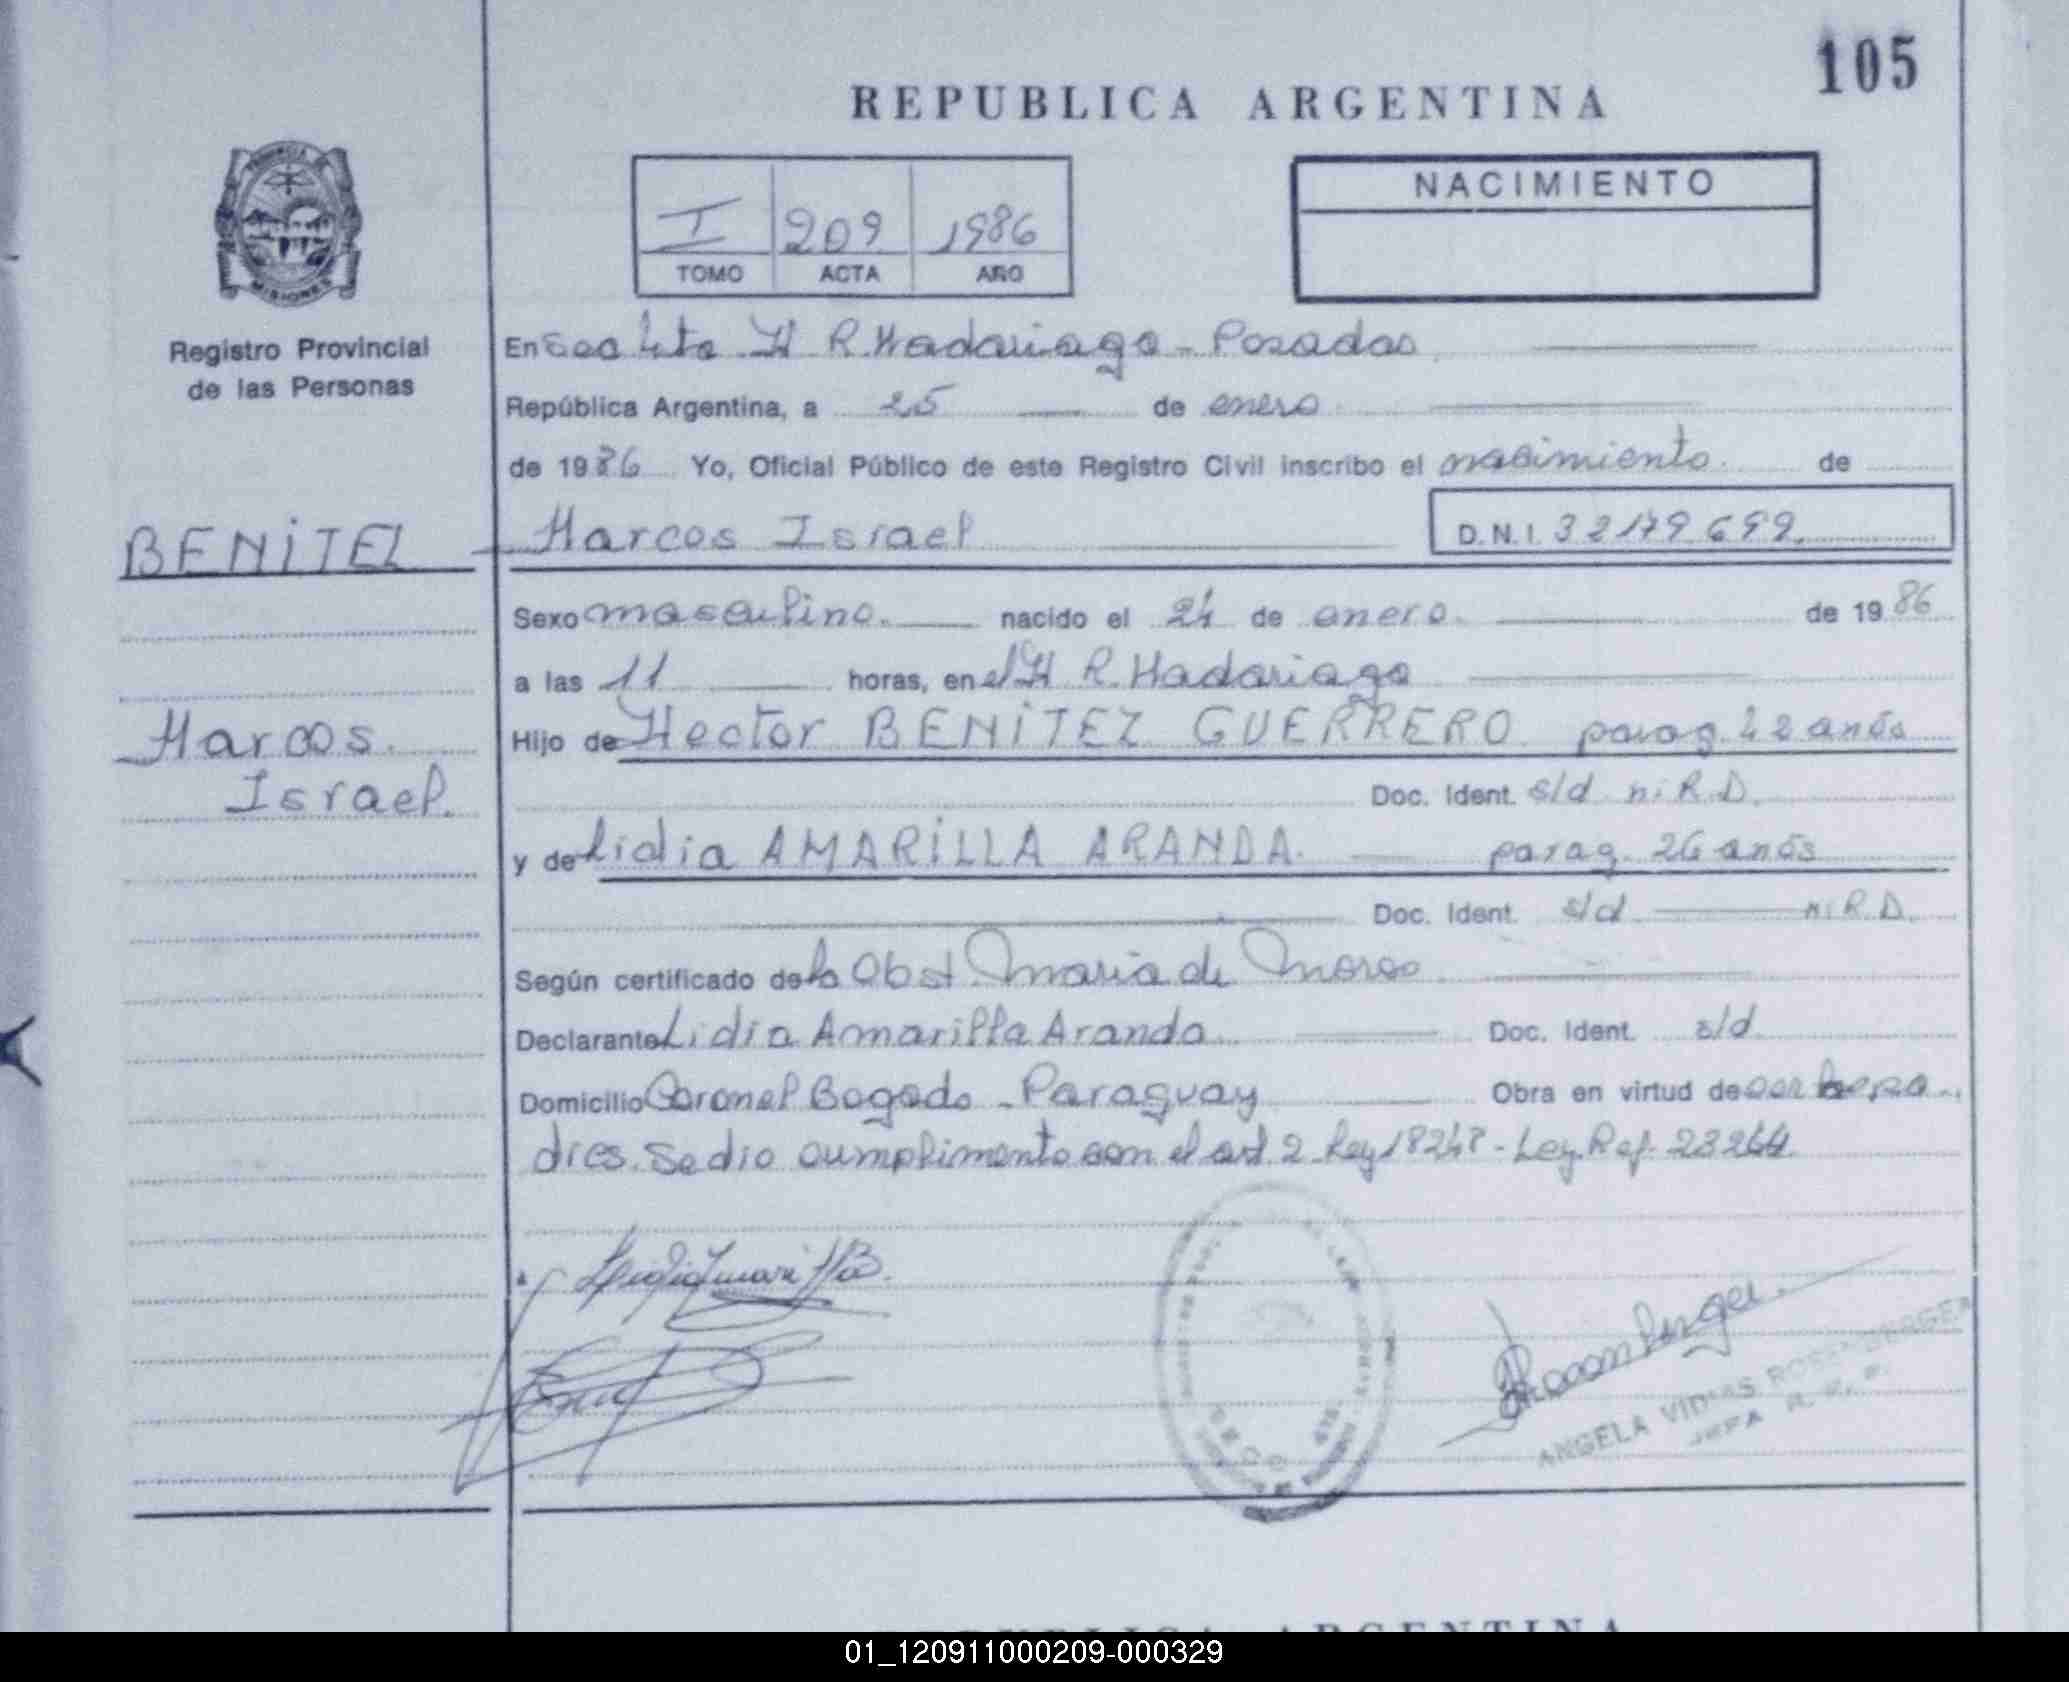 105
REPUBLICA ARGENTINA
PROVINCIA
MISIONES
Registro Provincial
de las Personas
I 209 1986
TOMO ACTA AÑO
NACIMIENTO
En H R. Madariaga - Posadas
República Argentina, a 25 de enero
de 1986 Yo, Oficial Público de este Registro Civil inscribo el nacimiento de
BENITEZ Marcos Israel D.N.I. 32179699
Sexo masculino. nacido el 24 de enero de 1986
a las 11 horas, en el H R. Madariaga
Marcos
Israel.
Hijo de Hector BENITEZ GUERRERO parag. 42 años
Doc. Ident. s/d ni R.D.
y de Lidia AMARILLA ARANDA. parag. 26 años
Doc. Ident. s/d ni R.D.
Según certificado de la Obst. Maria de
Declarante Lidia Amarilla Aranda Doc. Ident. s/d
Domicilio Coronel Bogado - Paraguay Obra en virtud de
dres. Se dio cumplimento con el art. 2 - Ley 18248 - Ley Ref. 23264
ANGELA VIDAS ROSENBERGER
JEFA R. P. P.
REPUBLICA ARGENTINA
01_120911000209-000329